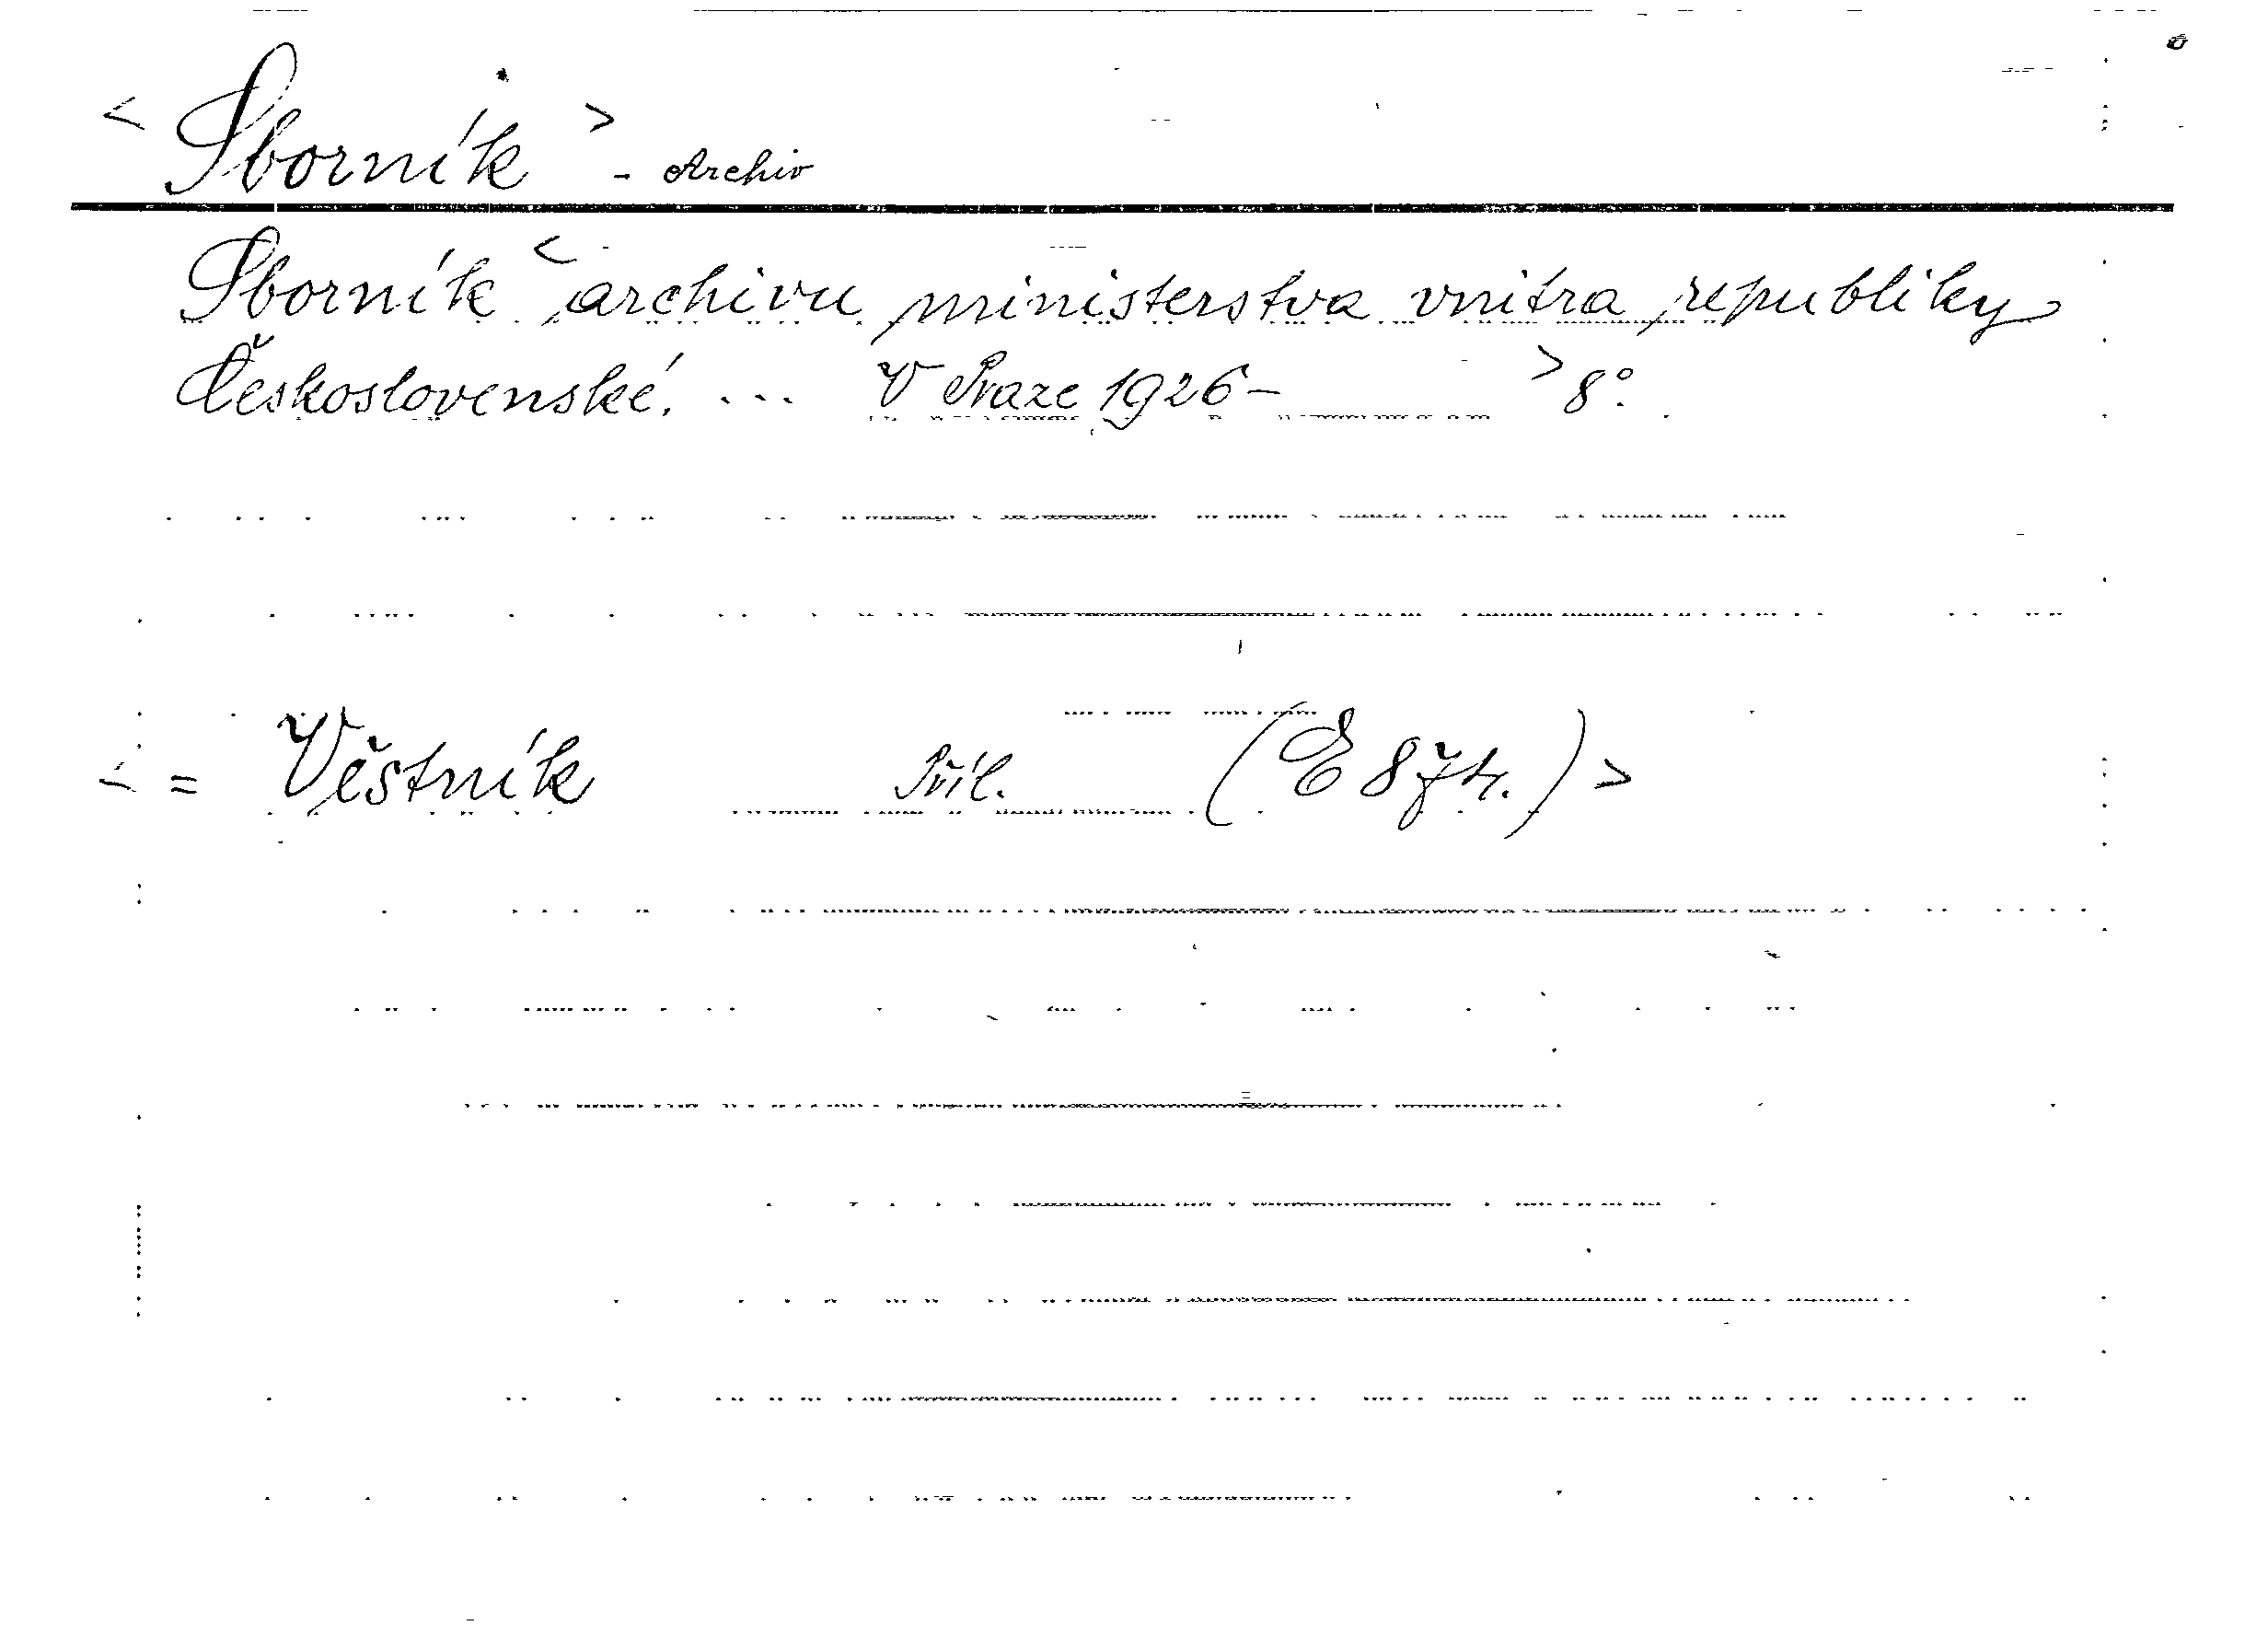 < Sborník > - Archiv
Sborník < archivu ministerstva vnitra republiky
Československé. ... V Praze 1926- > 8°.
< = Věstník Příl. (E 874.) >